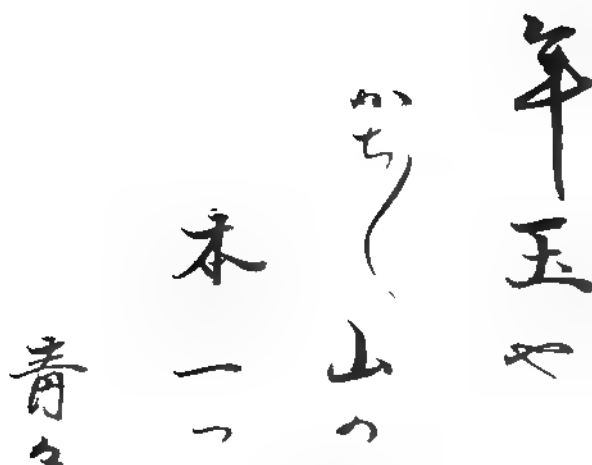 年玉や
かち〳〵山の
本一つ
青々